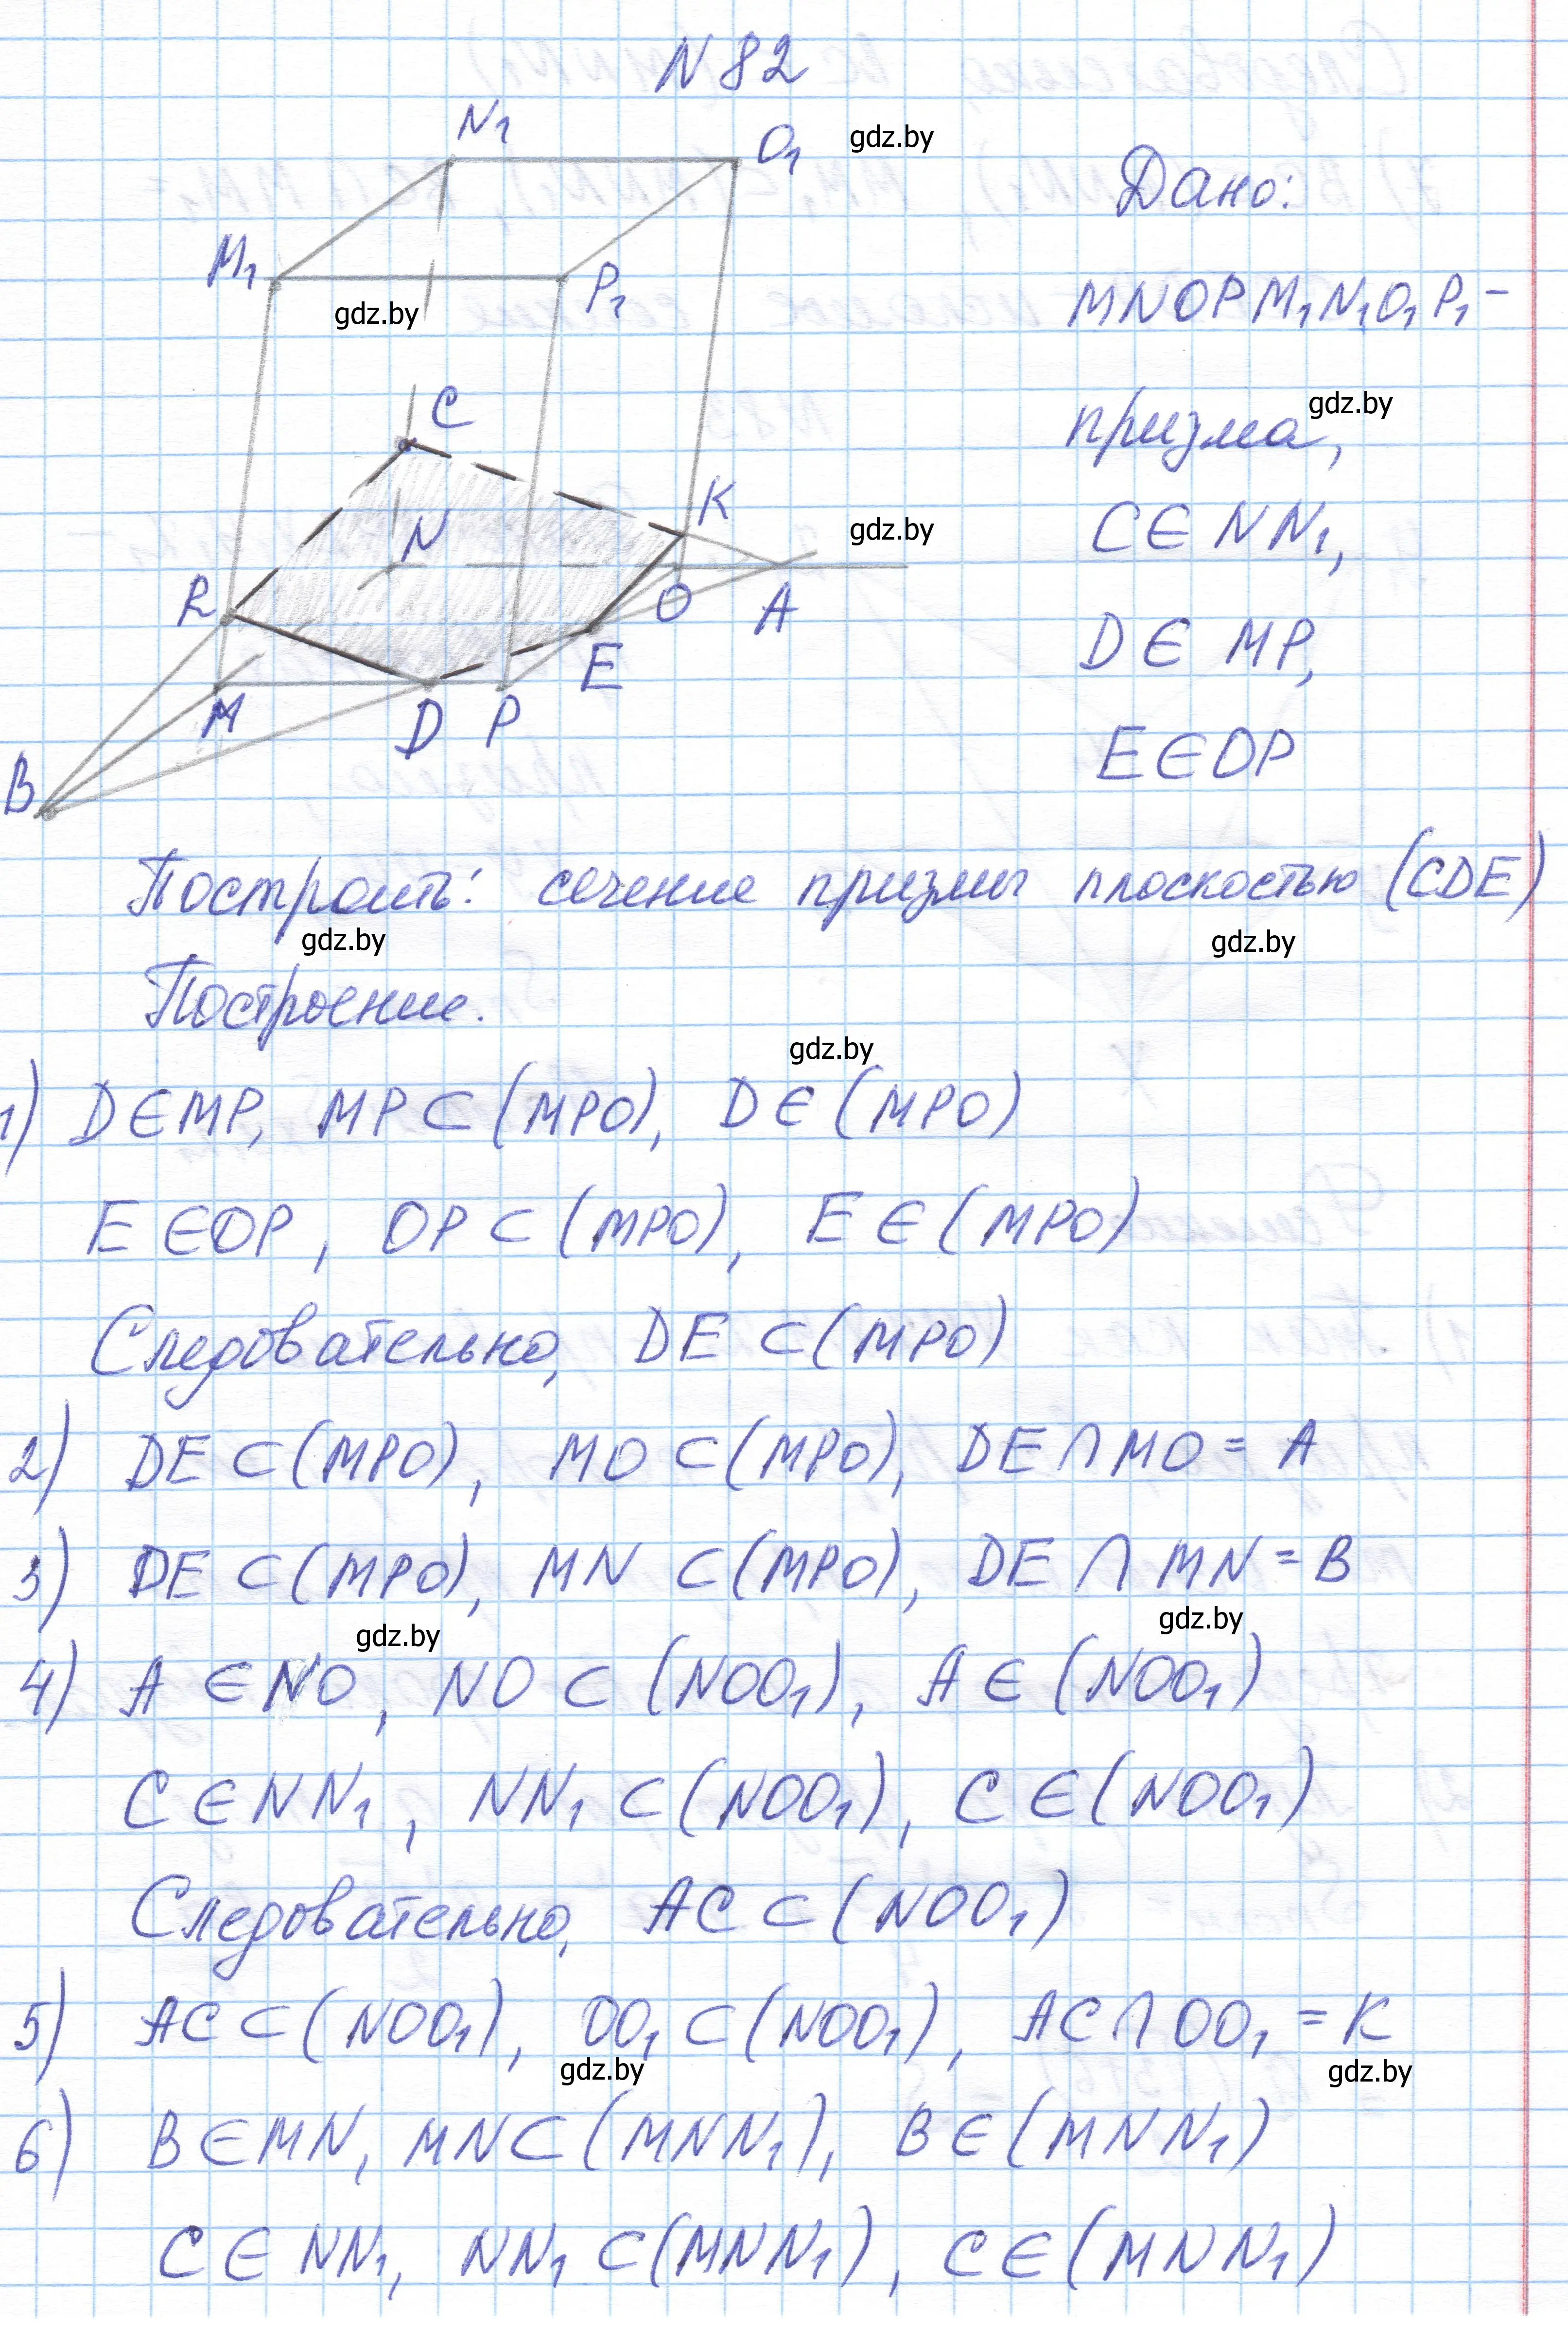 N 82
N₁
O₁
gdz.by
Дано:
M₁
P₁
MNOPM₁N₁O₁P₁ -
gdz.by
C
призма,
gdz.by
K
C ∈ NN₁,
gdz.by
N
R
O
A
D ∈ MP,
E
M
D
P
E ∈ OP
B
Построить: сечение призмы плоскостью (CDE)
gdz.by
gdz.by
Построение.
gdz.by
1) D ∈ MP, MP ⊂ (MPO), D ∈ (MPO)
E ∈ OP, OP ⊂ (MPO), E ∈ (MPO)
Следовательно, DE ⊂ (MPO)
2) DE ⊂ (MPO), MO ⊂ (MPO), DE ∩ MO = A
3) DE ⊂ (MPO), MN ⊂ (MPO), DE ∩ MN = B
gdz.by
gdz.by
4) A ∈ NO, NO ⊂ (NOO₁), A ∈ (NOO₁)
C ∈ NN₁, NN₁ ⊂ (NOO₁), C ∈ (NOO₁)
Следовательно, AC ⊂ (NOO₁)
5) AC ⊂ (NOO₁), OO₁ ⊂ (NOO₁), AC ∩ OO₁ = K
gdz.by
gdz.by
6) B ∈ MN, MN ⊂ (MNN₁), B ∈ (MNN₁)
C ∈ NN₁, NN₁ ⊂ (MNN₁), C ∈ (MNN₁)